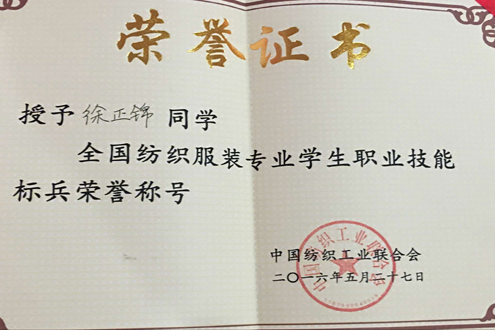 荣誉证书
授予徐正锦同学
全国纺织服装专业学生职业技能
标兵荣誉称号
中国纺织工业联合会
二〇一六年五月二十七日
中国纺织工业联合会